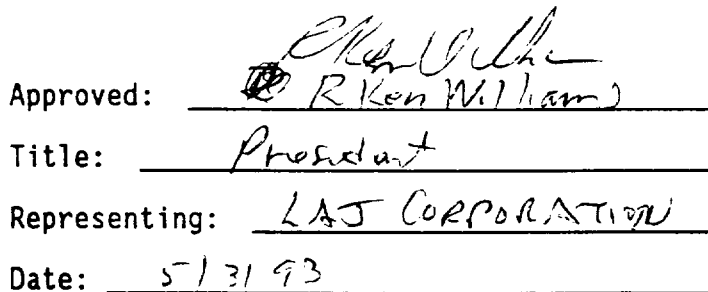 Approved: R Ken Williams
Title: President
Representing: LAJ CORPORATION
Date: 5/3/93